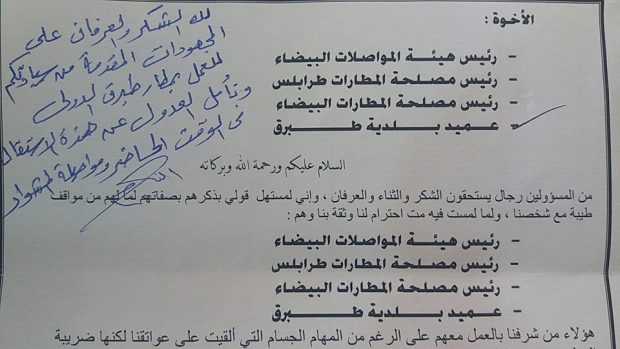 الأخوة :
- رئيس هيئة المواصلات البيضاء
- رئيس مصلحة المطارات طرابلس
- رئيس مصلحة المطارات البيضاء
- عميد بلدية طبرق
لله الشكر والعرفان على
المجهودات المقدمة من سيادتكم
للعمل بمطار طبرق الدولي
ونأمل العدول عن هذه الاستقالة
في الوقت الحاضر ومواصلة المشوار
السلام عليكم ورحمة الله وبركاته
من المسؤولين رجال يستحقون الشكر والثناء والعرفان ، وإني لمستهل قولي بذكرهم بصفاتهم لما لهم من مواقف
طيبة مع شخصنا ، ولما لمست فيه مت احترام لنا وثقة بنا وهم :
- رئيس هيئة المواصلات البيضاء
- رئيس مصلحة المطارات طرابلس
- رئيس مصلحة المطارات البيضاء
- عميد بلدية طبرق
هؤلاء من شرفنا بالعمل معهم على الرغم من المهام الجسام التي ألقيت على عواتقنا لكنها ضريبة